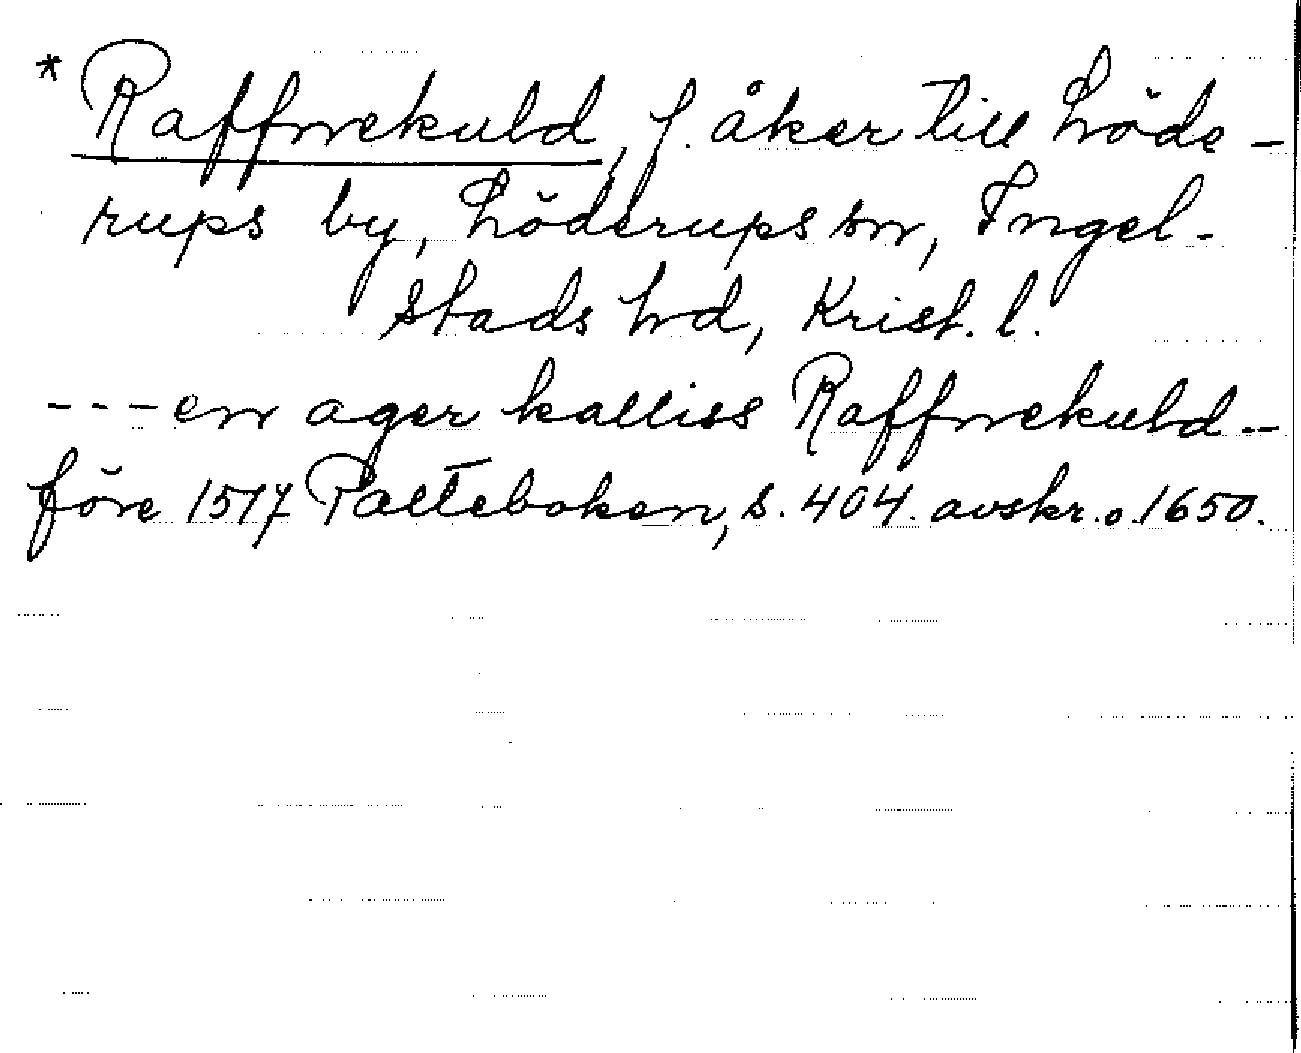 * Raffnekuld, f. åker till Löde-
rups by, Löderups sn, Ingel-
stads hd, Krist. l.
--- en ager kalliss Raffnekuld --
före 1517 Palteboken, s. 404. avskr. o. 1650.